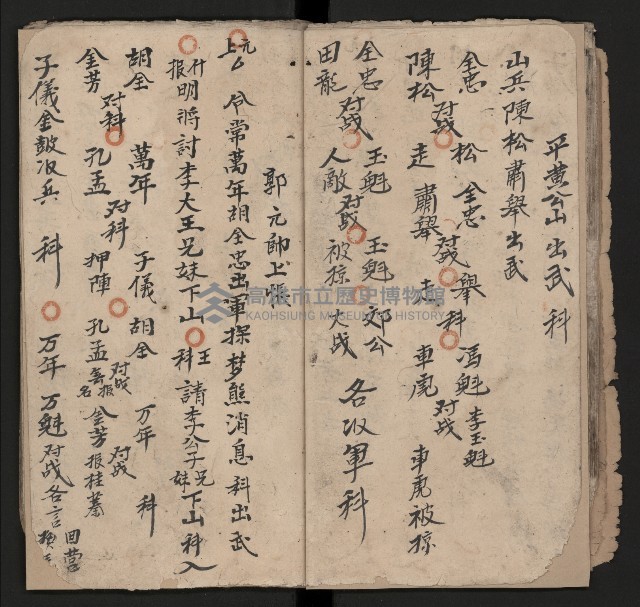 平黃公山出武科
山兵陳松肅舉出武
全忠 松 全忠 舉科 馮魁 李玉魁
对战 对战 对战
陳松 走 肅舉 走 車虎 車虎被掠
全忠 玉魁 玉魁 郊公 各收軍科
对战 对战
田龍 人敵 被掠 大战
郭元帥上帳
元上 令常萬年胡全忠出軍探梦熊消息科出武
什报明將討李大王兄妹下山科 王請李公子兄妹下山科入
胡全 萬年 子儀 胡全 万年 科
对科 对科 对战 对战
金芳 孔孟 押陣 孔孟 金芳报挂慕
子儀金鼓收兵 科 万年 万魁对战各言 回营
高雄市立歷史博物館
KAOHSIUNG MUSEUM OF HISTORY